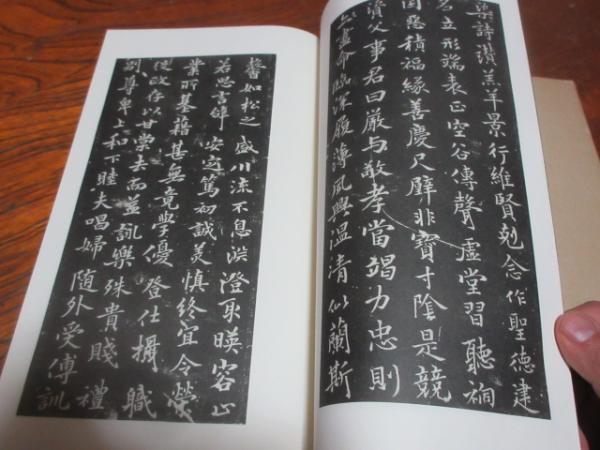 染詩讃羔羊景行維賢剋念作聖德建
名立形端表正空谷傳聲虚堂習聽禍
因惡積福緣善慶尺璧非寶寸陰是競
資父事君曰嚴与敬孝當竭力忠則
盡命臨深履薄夙興温清似蘭斯
馨如松之盛川流不息淵澄取暎容止
若思言辞安定篤初誠美慎終宜令榮
業所基藉甚無竟學優登仕攝職
從政存以甘棠去而益詠樂殊貴賤禮
別尊卑上和下睦夫唱婦随外受傅訓